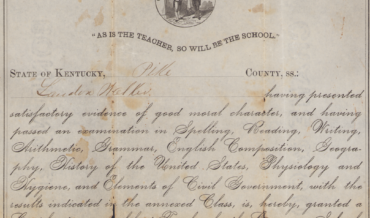 "AS IS THE TEACHER, SO WILL BE THE SCHOOL."
STATE OF KENTUCKY, Pike COUNTY, SS.:
having presented
satisfactory evidence of good moral character, and having
passed an examination in Spelling, Reading, Writing,
Arithmetic, Grammar, English Composition, Geogra-
phy, History of the United States, Physiology and
Hygiene, and Elements of Civil Government, with the
results indicated in the annexed Class, is, hereby, granted a